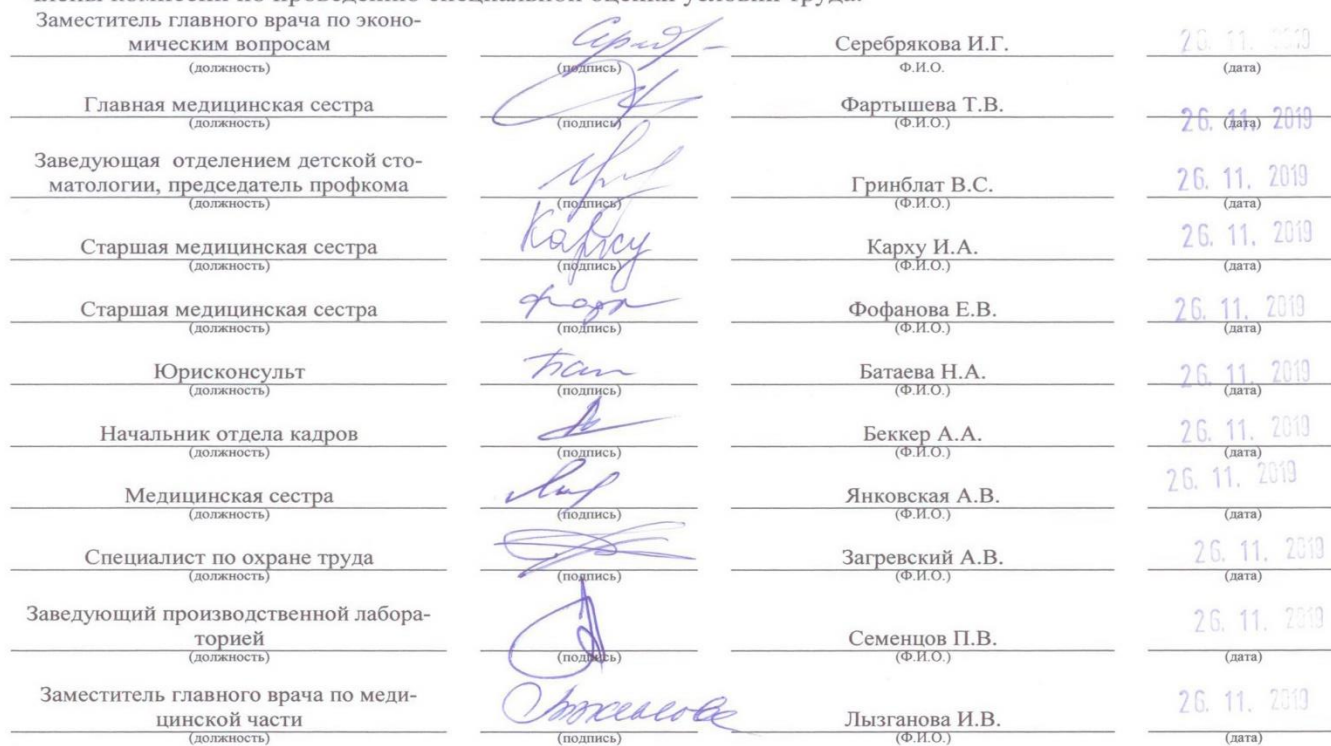 Члены комиссии по проведению специальной оценки условий труда:
Заместитель главного врача по эконо-
мическим вопросам Серебрякова И.Г. 26. 11. 2019
(должность) (подпись) Ф.И.О. (дата)
Главная медицинская сестра Фартышева Т.В. 26. 11. 2019
(должность) (подпись) (Ф.И.О.) (дата)
Заведующая отделением детской сто-
матологии, председатель профкома Гринблат В.С. 26. 11. 2019
(должность) (подпись) (Ф.И.О.) (дата)
Старшая медицинская сестра Карху Карху И.А. 26. 11. 2019
(должность) (подпись) (Ф.И.О.) (дата)
Старшая медицинская сестра Фофанова Е.В. 26. 11. 2019
(должность) (подпись) (Ф.И.О.) (дата)
Юрисконсульт Батаева Н.А. 26. 11. 2019
(должность) (подпись) (Ф.И.О.) (дата)
Начальник отдела кадров Беккер А.А. 26. 11. 2019
(должность) (подпись) (Ф.И.О.) (дата)
Медицинская сестра Янковская А.В. 26. 11. 2019
(должность) (подпись) (Ф.И.О.) (дата)
Специалист по охране труда Загревский А.В. 26. 11. 2019
(должность) (подпись) (Ф.И.О.) (дата)
Заведующий производственной лабора-
торией Семенцов П.В. 26. 11. 2019
(должность) (подпись) (Ф.И.О.) (дата)
Заместитель главного врача по меди-
цинской части Лызганова И.В. 26. 11. 2019
(должность) (подпись) (Ф.И.О.) (дата)